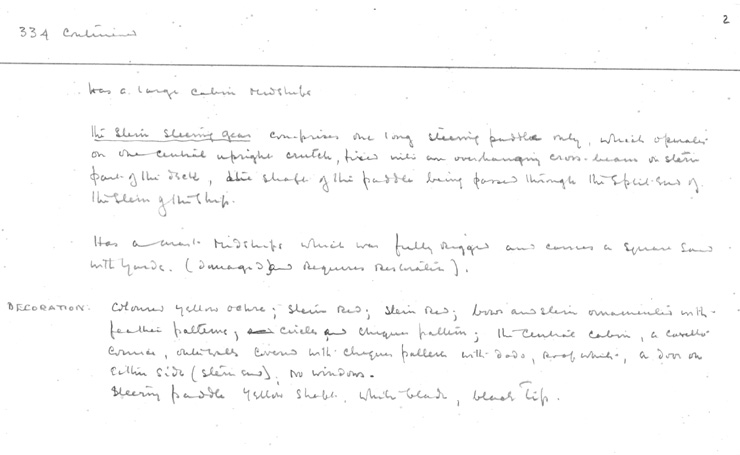 2
334 Continued
Has a large cabin midships
The Stern Steering gear comprises one long steering paddle only, which operates
on one central upright crutch, fixed into an overhanging cross-beam on stern
part of the deck, the shaft of the paddle being passed through the split end of
the stern of the ship.
Has a mast midships which was fully rigged and carries a square sail
with yards. (Damaged and requires restoration).
DECORATION: Coloured yellow ochre; stem red; stern red; bows and stern ornamented with
feather patterns, circles and cheques pattern; the central cabin, a cavetto
cornice, walls covered with cheques pattern with dado, roof white, a door on
either side (stern end), no windows.
Steering paddle yellow shaft, white blade, black tip.